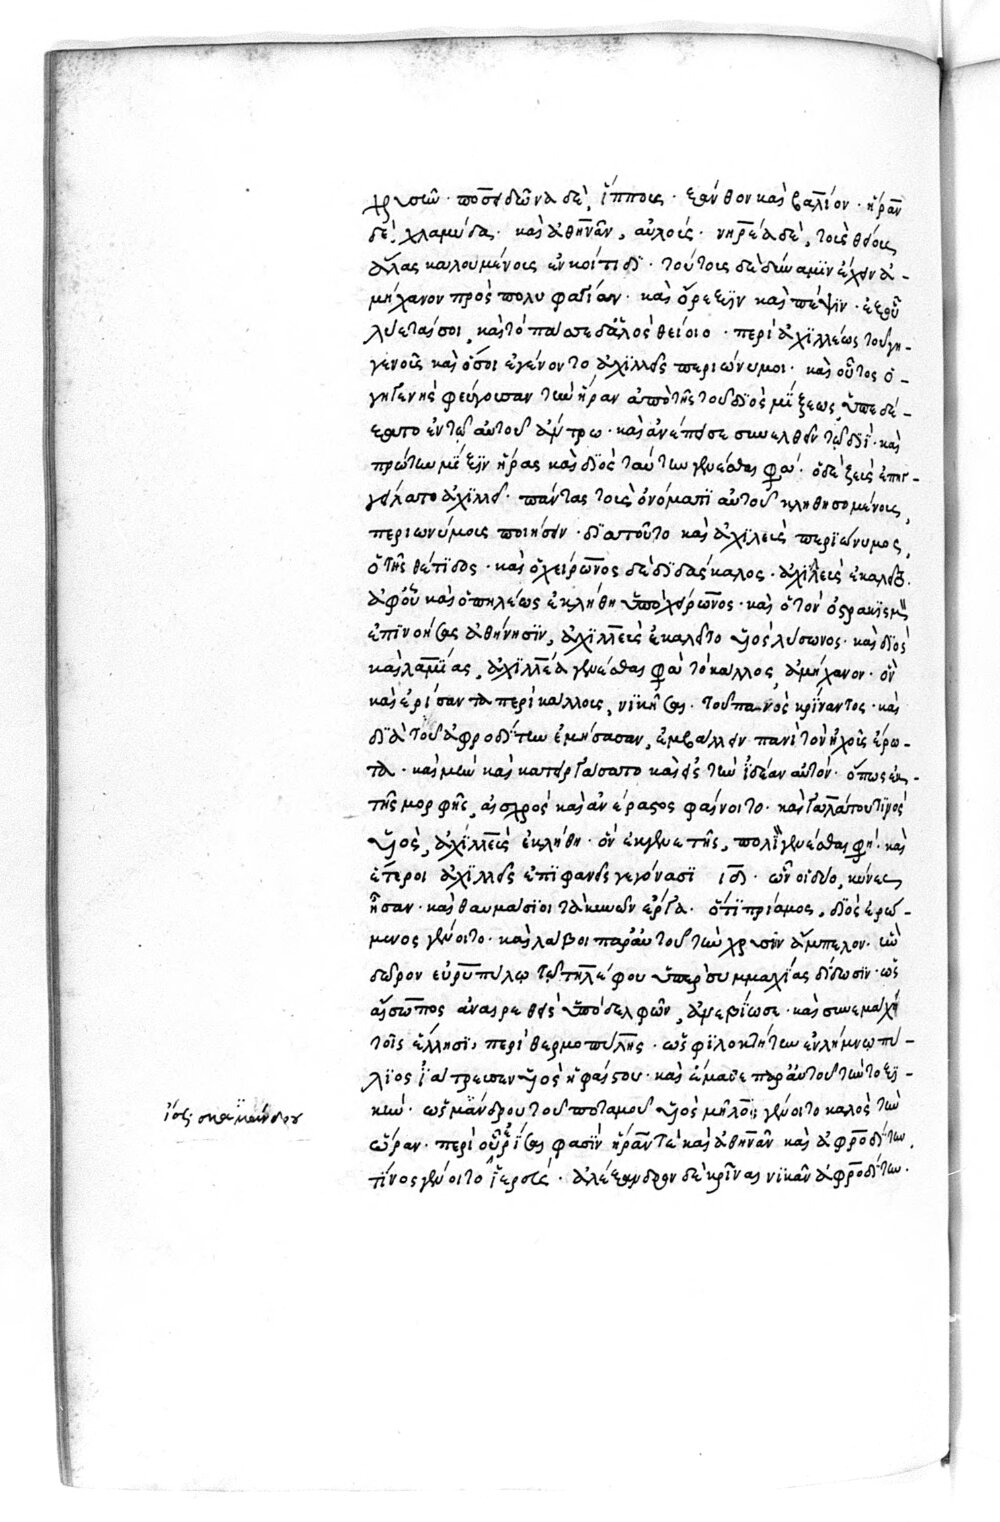 χρυσῶν· ποσειδῶνα δὲ, ἵππους· ξάνθον καὶ βαλίον· ἥραν
δὲ, χλαμύδα· καὶ ἀθηνᾶν, αὐλούς· νηρέα δὲ, τοὺς θείους
ἅλας καλουμένους ἐν κοιτίδι· τούτους δὲ δύναμιν ἔχειν ἀ-
μήχανον πρὸς πολυφαγίαν· καὶ ὄρεξιν καὶ πέψιν· ἐξ οὗ
λύεταί σοι, καὶ τὸ πάσσε δ' ἁλὸς θείοιο· περὶ ἀχιλλέως τοῦ γη-
γενοῦς καὶ ὅσοι ἐγένοντο ἀχιλλεῖς περιώνυμοι· καὶ οὗτος ὁ
γηγενὴς φεύγουσαν τὴν ἥραν ἀπὸ τῆς τοῦ διὸς μίξεως, ὑπεδέ-
ξατο ἐν τῷ αὐτοῦ ἄντρω· καὶ ἀνέπεισε συνελθεῖν τῷ διΐ· καὶ
πρώτην μίξιν ἥρας καὶ διὸς ταύτην γενέσθαι φασί· ὁ δὲ ζεὺς ἐπηγ-
γείλατο ἀχιλλεῖ· πάντας τοὺς ὀνόματι αὐτοῦ κληθησομένους,
περιωνύμους ποιήσειν· διὰ τοῦτο καὶ ἀχιλεὺς περιώνυμος,
ὁ τῆς θέτιδος· καὶ ὁ χείρωνος δὲ διδάσκαλος· ἀχιλλεὺς ἐκαλεῖτο·
ἀφ' οὗ καὶ ὁ πηλέως ἐκλήθη ὑπὸ χείρωνος· καὶ ὁ τὸν ὀστρακισμὸν
ἐπινοήσας ἀθήνησιν, ἀχιλλεὺς ἐκαλεῖτο υἱὸς λύσωνος· καὶ διὸς
καὶ λαμίας, ἀχιλλέα γενέσθαι φασὶ τὸ κάλλος, ἀμήχανον· ὃν
καὶ ἐρίσαντα περὶ κάλλους, νικῆσαι· τοῦ πανὸς κρίναντος· καὶ
διὰ τοῦτο ἀφροδίτην ἐμήσασαν, ἐμβαλεῖν πανὶ τὸν ἠχοῦς ἔρω-
τα· καὶ μὴν καὶ κατειργάσατο καὶ εἰς τὴν ἰδέαν αὐτόν· ὅπως ἐκ
τῆς μορφῆς, αἰσχρὸς καὶ ἀνέραστος φαίνοιτο· καὶ γαλάτου τινὸς
υἱὸς, ἀχιλλεὺς ἐκλήθη· ὃν ἐκ γενετῆς, πολιὸν γενέσθαι φησί· καὶ
ἕτεροι ἀχιλλεῖς ἐπιφανεῖς γεγόνασι ιδ· ὧν οἱ δύο, κύνες
ἦσαν· καὶ θαυμάσιοι τὰ κυνῶν ἔργα· ὅτι πρίαμος, διὸς ἐρώ-
μενος γένοιτο· καὶ λάβοι παρ' αὐτοῦ τὴν χρυσῆν ἄμπελον· ἣν
δῶρον εὐρυπύλῳ τῷ τηλέφου ὑπὲρ συμμαχίας δίδωσιν· ὡς
αἴσωπος ἀναιρεθεὶς ὑπὸ δελφῶν, ἀνεβίωσε· καὶ συνεμάχει
τοῖς ἕλλησι, περὶ θερμοπύλης· ὡς φιλοκτήτην ἐν λήμνῳ πύ-
λιος ἰάτρευσεν υἱὸς ἡφαίστου· καὶ ἔμαθε παρ' αὐτοῦ τὴν τοξι-
κήν· ὡς σκαμάνδρου τοῦ ποταμοῦ υἱὸς μῆλος γένοιτο καλὸς τὴν
ὥραν· περὶ οὗ ἐρίσαι φασὶν ἥραν τὲ καὶ ἀθηνᾶν καὶ ἀφροδίτην,
τίνος γένοιτο ἱερεύς· ἀλέξανδρον δὲ κρῖναι νικᾶν ἀφροδίτην·
ἴσως σκαμάνδρου